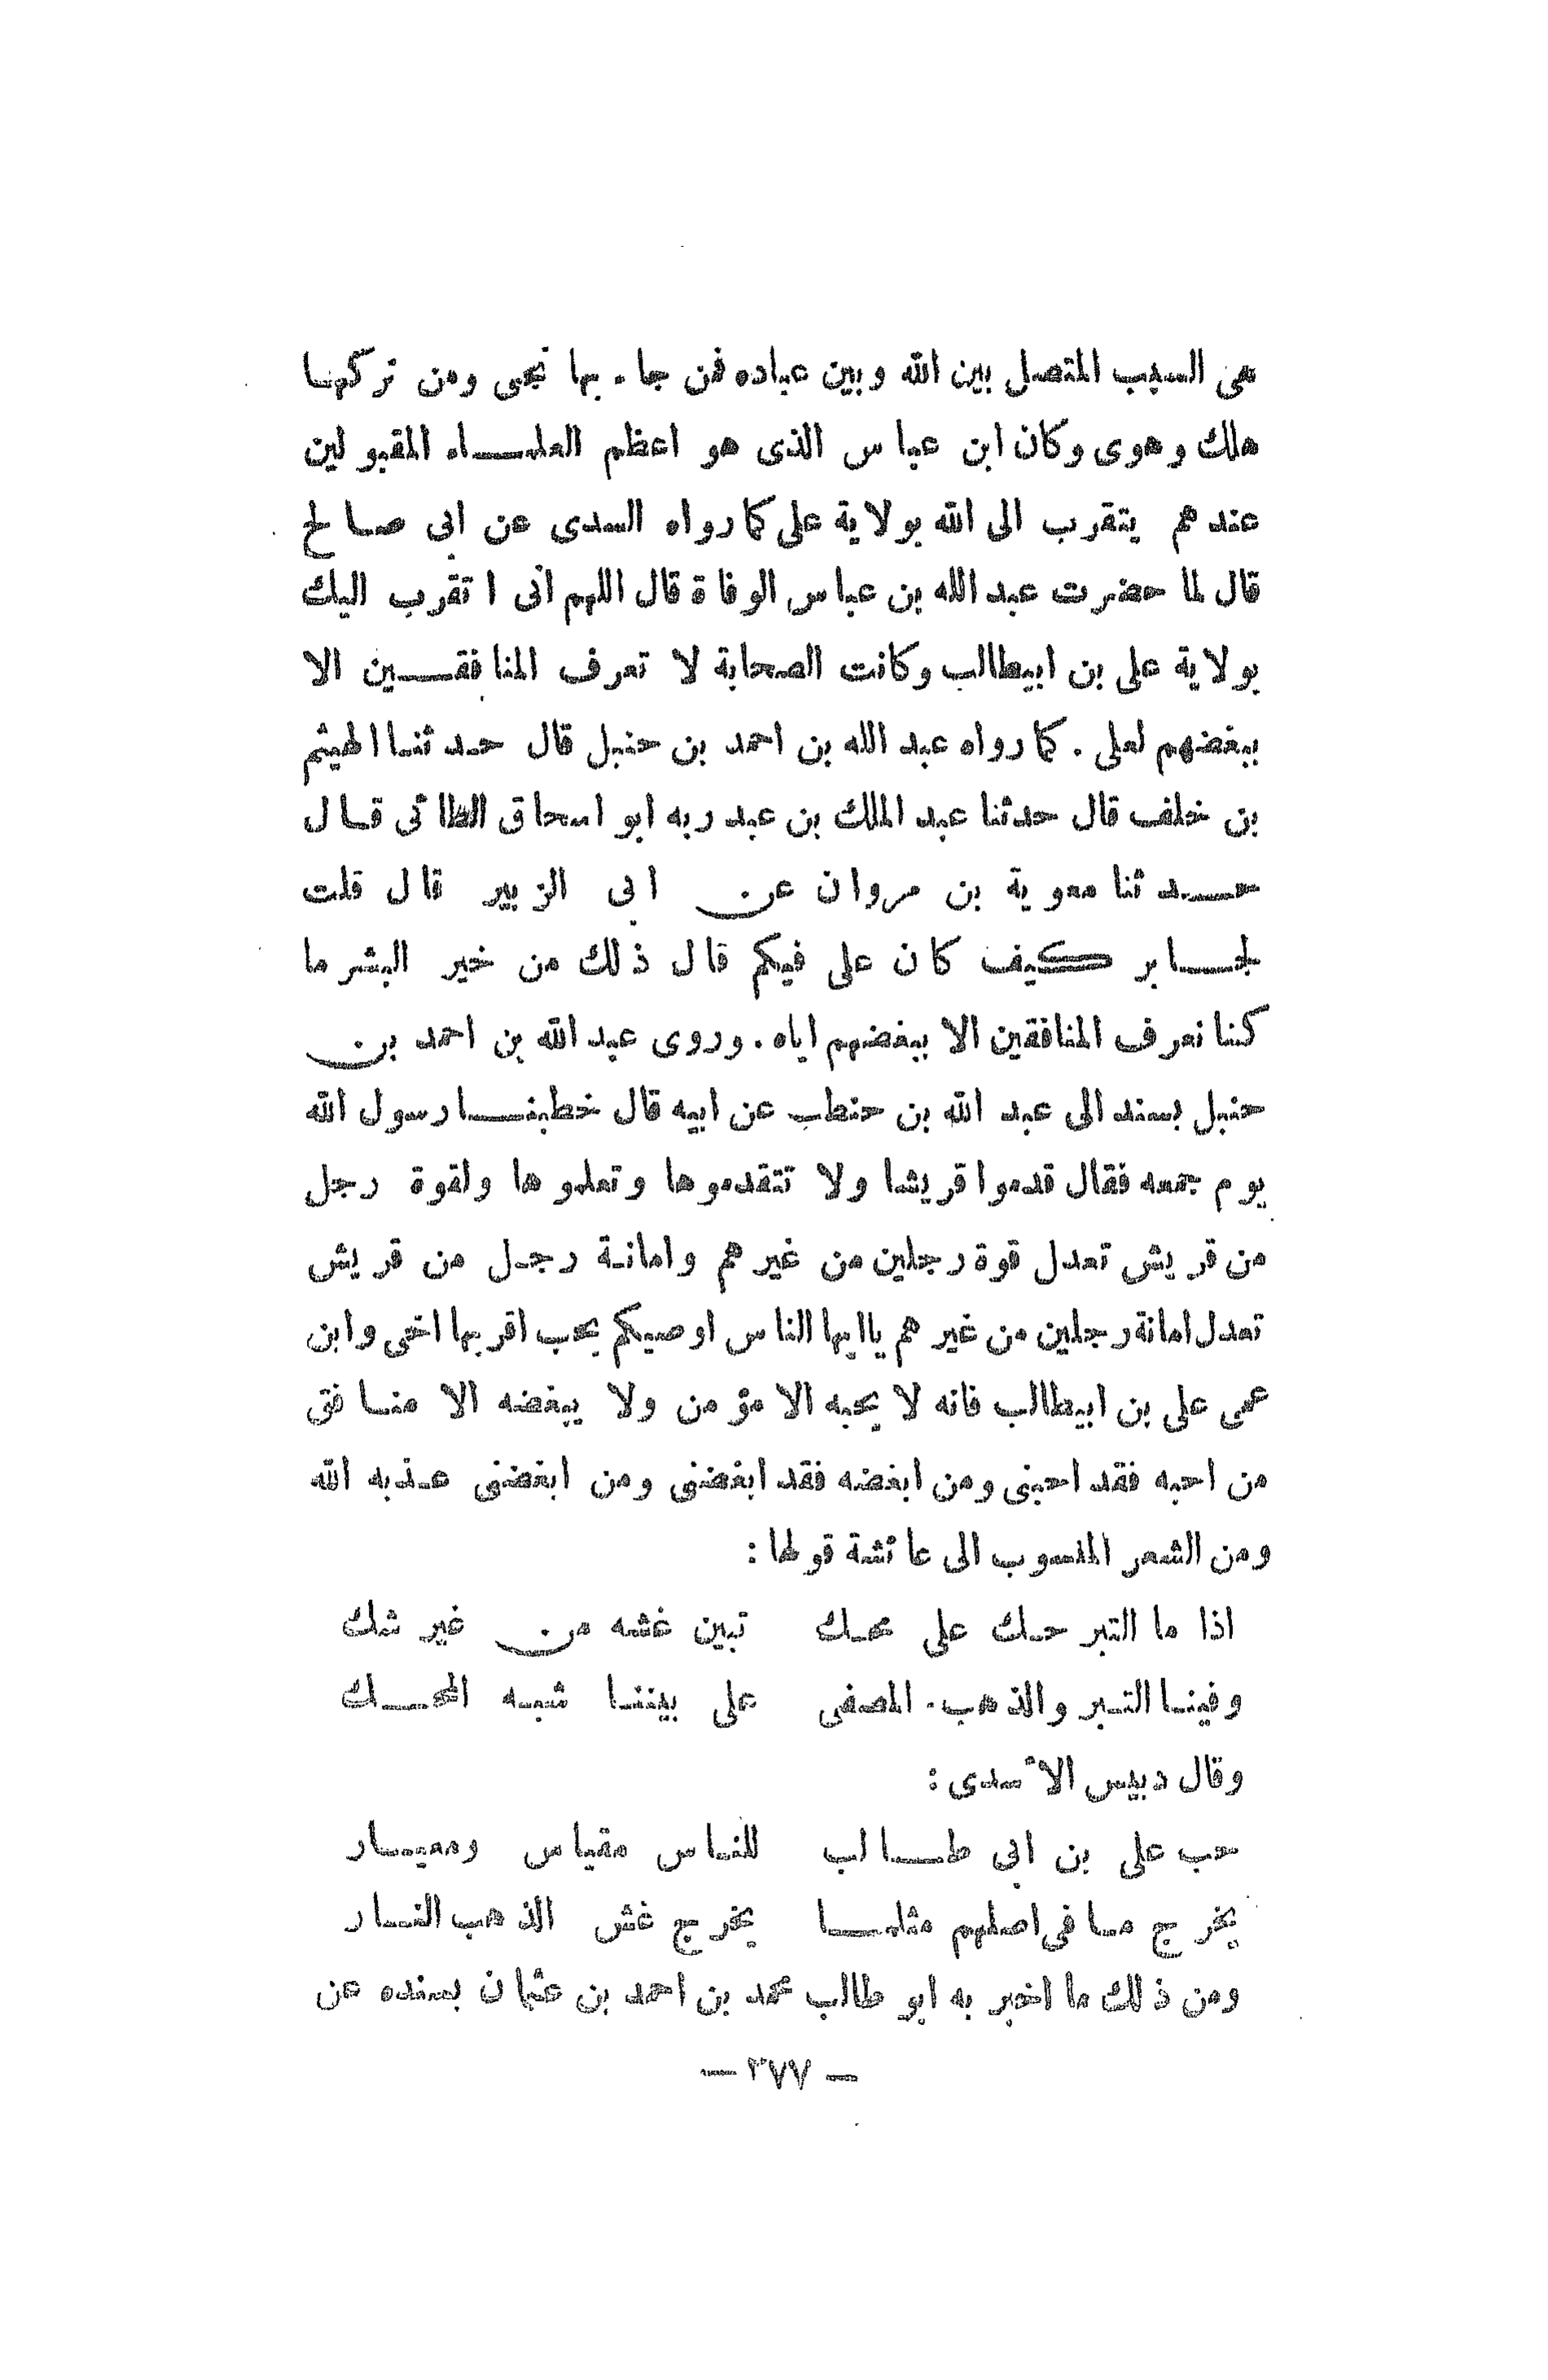 هى السبب المتصل بين الله وبين عباده فمن جاء بها نجى ومن تركها
هلك وهوى وكان ابن عباس الذى هو اعظم العلماء المقبولين
عندهم يتقرب الى الله بولاية على كما رواه السدى عن ابى صالح
قال لما حضرت عبد الله بن عباس الوفاة قال اللهم انى اتقرب اليك
بولاية على بن ابيطالب وكانت الصحابة لا تعرف المنافقين الا
ببغضهم لعلى . كما رواه عبد الله بن احمد بن حنبل قال حدثنا الهيثم
بن خلف قال حدثنا عبد الملك بن عبد ربه ابو اسحاق الطائى قال
حدثنا معوية بن مروان عن ابى الزبير قال قلت
لجابر كيف كان على فيكم قال ذلك من خير البشر ما
كنا نعرف المنافقين الا ببغضهم اياه . وروى عبد الله بن احمد بن
حنبل بسند الى عبد الله بن حنطب عن ابيه قال خطبنا رسول الله
يوم جمعه فقال قدموا قريشا ولا تتقدموها وتعلموها ولقوة رجل
من قريش تعدل قوة رجلين من غيرهم وامانة رجل من قريش
تعدل امانة رجلين من غيرهم ياايها الناس اوصيكم بحب اقربها اخى وابن
عمى على بن ابيطالب فانه لا يحبه الا مؤمن ولا يبغضه الا منافق
من احبه فقد احبنى ومن ابغضه فقد ابغضنى ومن ابغضنى عذبه الله
ومن الشعر المنسوب الى عائشة قولها :
اذا ما التبر حك على محك تبين غشه من غير شك
وفينا التبر والذهب المصفى على بيننا شبه المحك
وقال دبيس الأسدى :
حب على بن ابى طالب للناس مقياس ومعيار
يخرج ما فى اصلهم مثلما يخرج غش الذهب النار
ومن ذلك ما اخبر به ابو طالب محمد بن احمد بن عثمان بسنده عن
— ٢٧٧ —